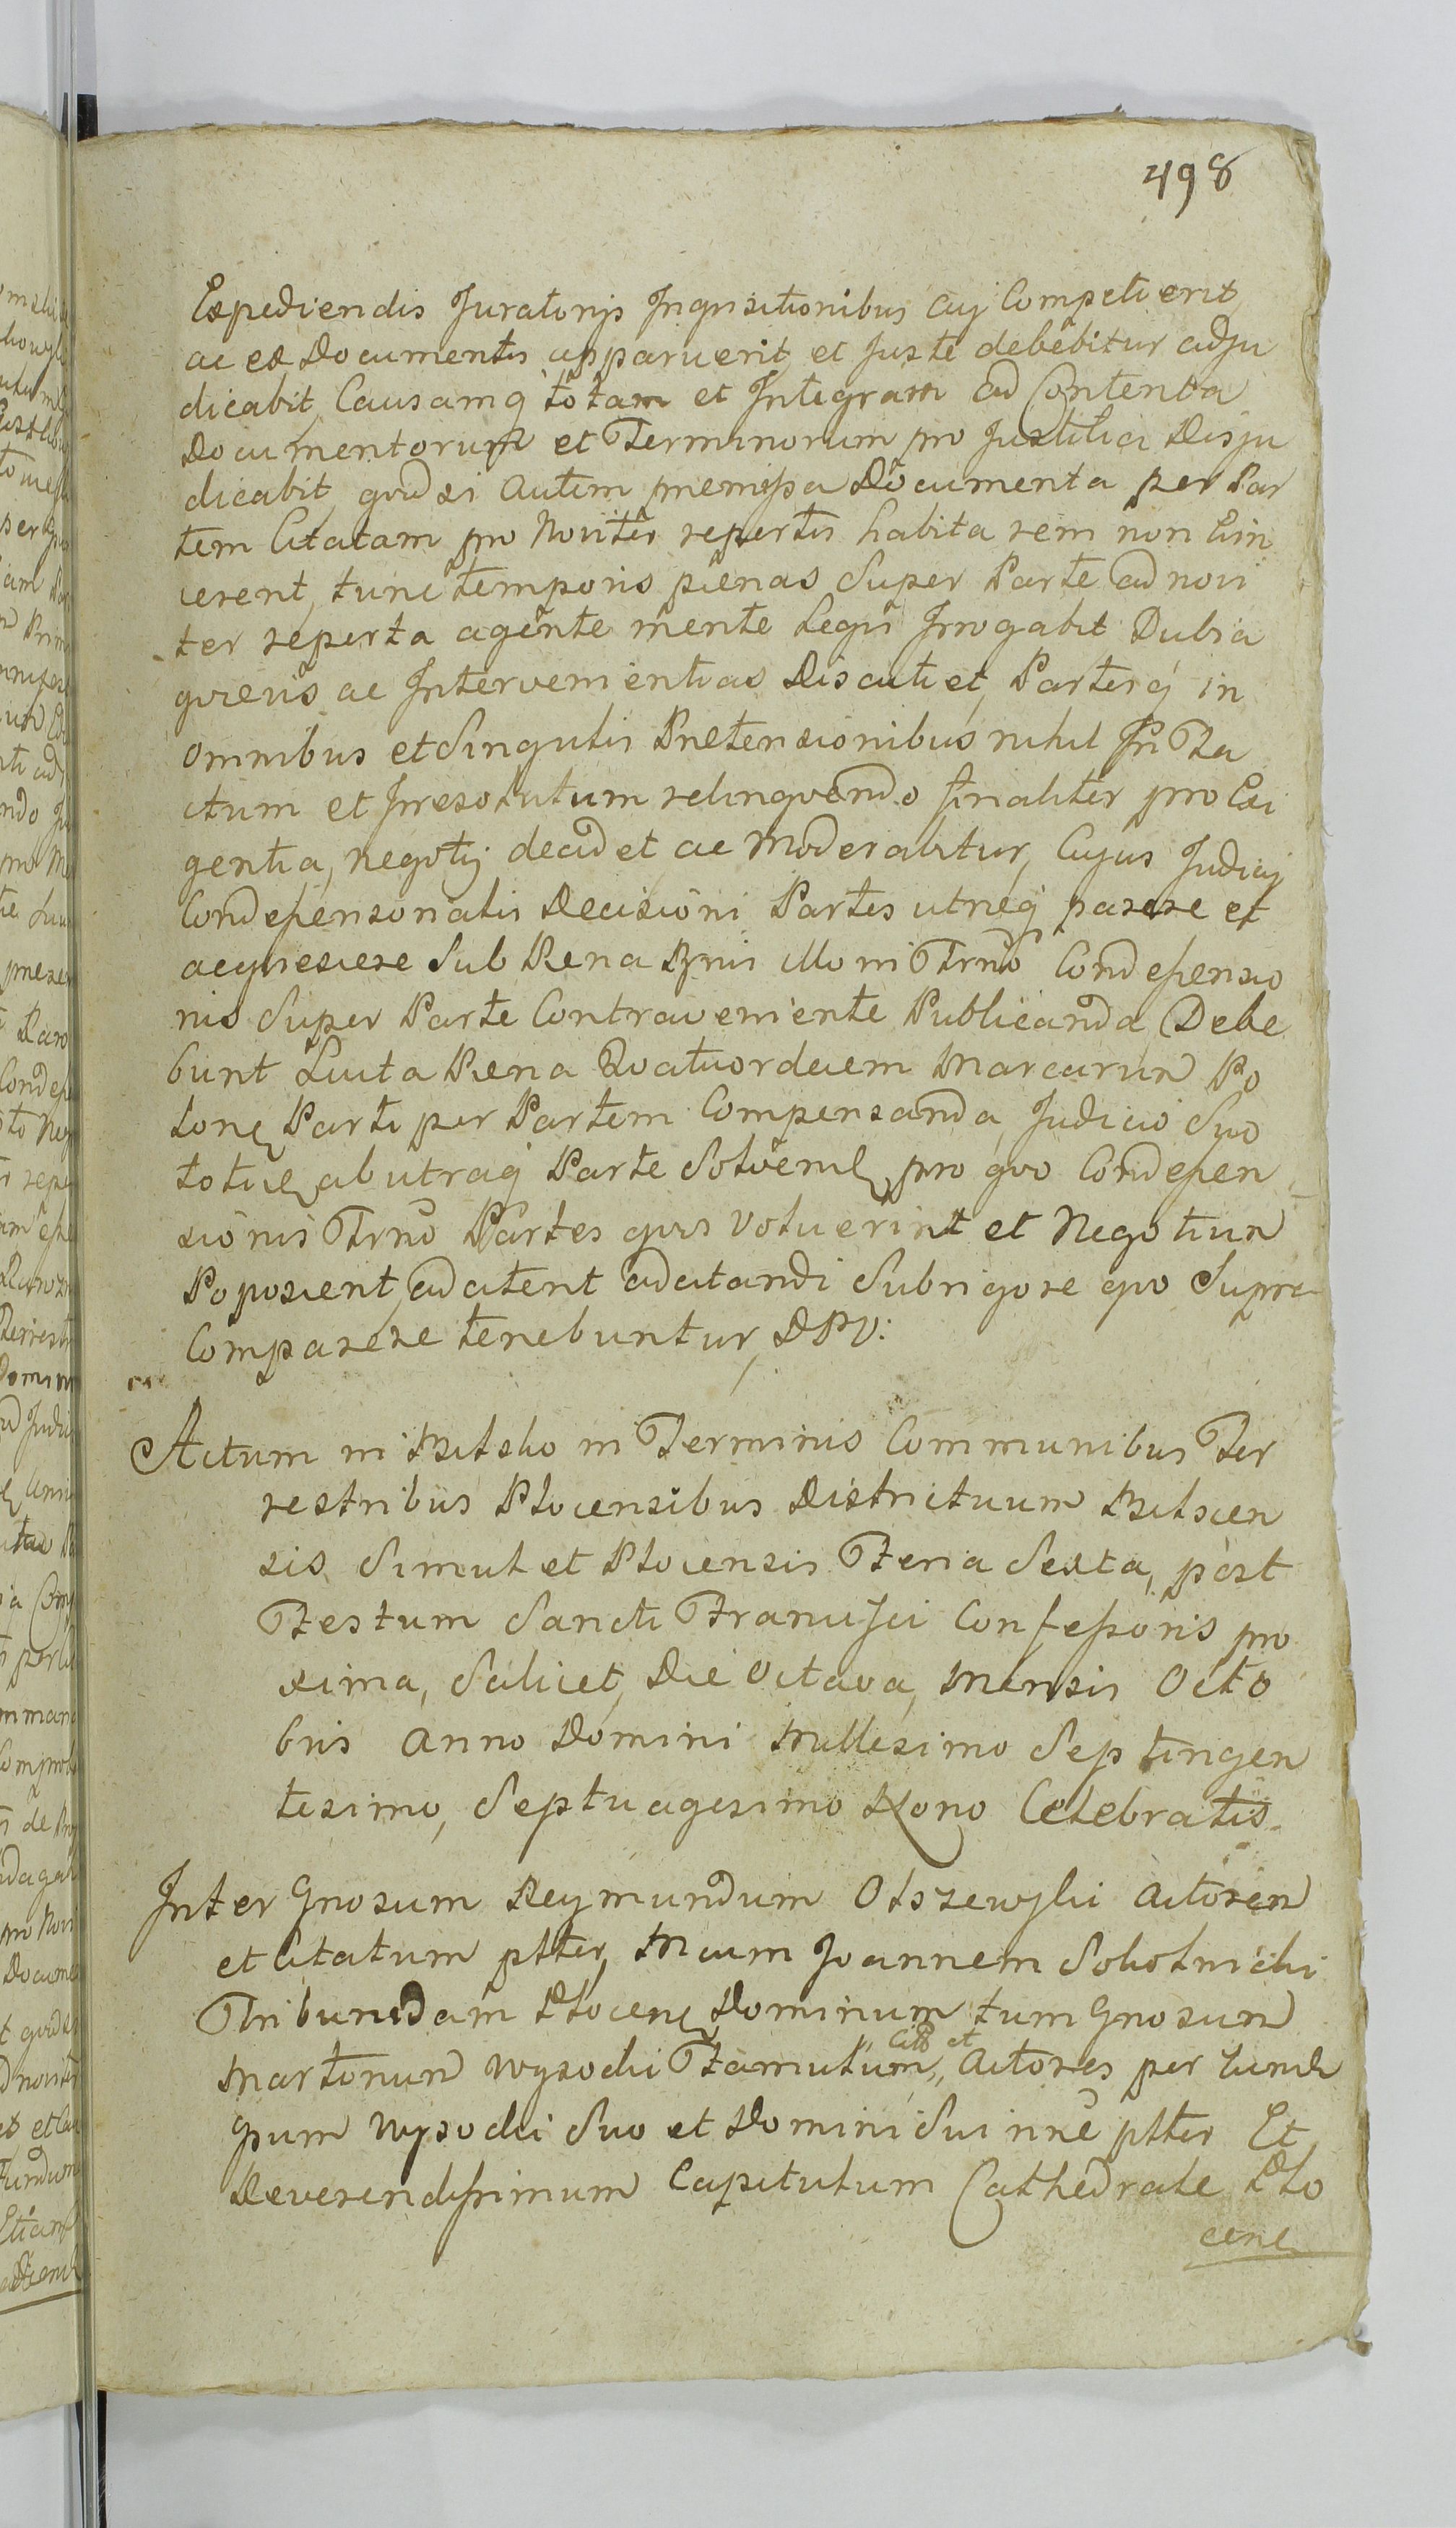 498
Expediendis Juratorijs Inqvisitionibus cuj Competierit,
ac ex Documentis apparuerit, et Juste debebitur adju
dicabit, Causamq totam et Integram ad Contenta
Documentorum et Terminorum pro Justitia Disju
dicabit, qvod si Autem premissa Documenta per Par
tem Citatam pro Noviter repertis habita rem non Evin
cerent, tunc temporis pœnas Super Parte ad novi
ter reperta agente mente Legis Irrogabit Dubia
qvævis ac Intervenientias Discutiet, Partesq in
omnibus et Singulis Prætensionibus nihil In Ta
citum et Irresolutum relinqvendo finaliter pro Exi
gentia, negotij decidet ac Moderabitur, Cujus Judicij
Condescensorialis Decisioni Partes utreq parere et
acqviescere Sub Pena Bnnis illo in Trno Condescensio
nis Super Parte Contraveniente Publicanda Debe
bunt Luita Pæna Qvatuordecim Marcarum Po
lone Parti per Partem Compensanda, Judicio Svo
totiie ab utraq Parte Solvene, pro qvo Condescen
sionis Trno Partes qvis Voluerint et Negotium
Poposcerit, adcitent adcitandi Sub rigore qvo Supra
Comparere tenebuntur, DPV:
Actum in Bielsko in Terminis Communibus Ter
restribus Plocensibus Districtuum Bielscen
sis Simul et Plocensis Feria Sexta, post
Festum Sancti Francisci Confessoris pro
xima, Scilicet, Die Octava, Mensis Octo
bris Anno Domini Millesimo Septingen
tesimo, Septuagesimo Nono Celebratis.
Inter Gnosum Reymundum Olszewski Actorem
et Citatum ptter, Mcum Joannem Sokolnicki
Tribunidam Plocene Dominum tum Gnosum
Martinum Wysocki Famulum,, Citt et Actores per
Ipsum Wysocki Suo et Domini Sui nne ptter Et
Reverendissimum Capitulum Cathedrale Plo
cene